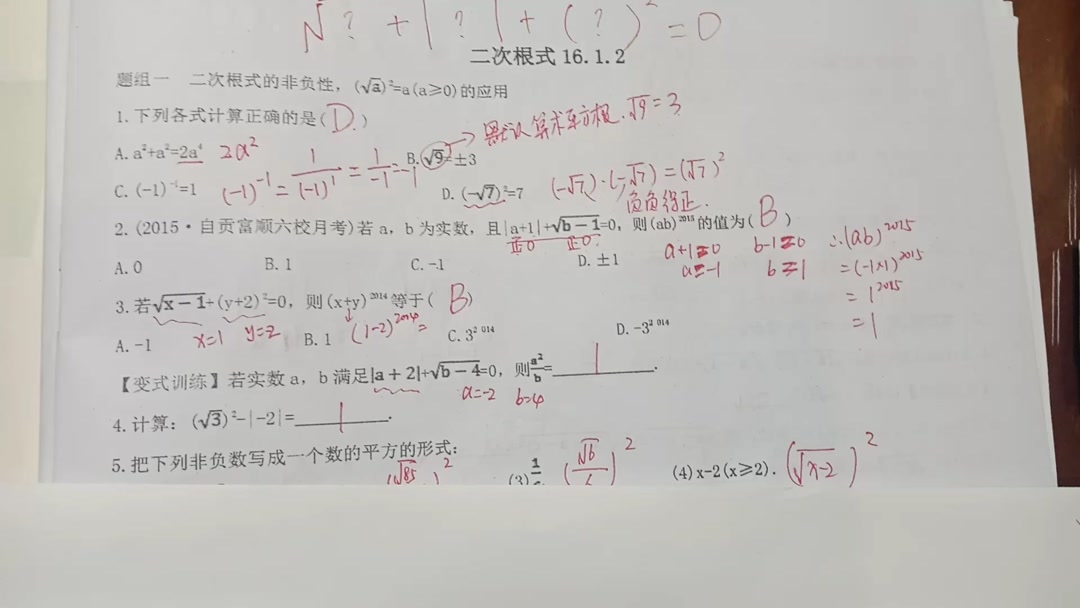 √? + |?| + (?)² = 0
二次根式 16.1.2
题组一 二次根式的非负性，(√a)²=a(a≥0)的应用
1.下列各式计算正确的是( D. )
A.a²+a²=2a⁴ 2a² B.√9=±3 → 默认算术平方根.√9=3
C.(-1)⁻¹=1 (-1)⁻¹=1/(-1)¹=1/-1=-1 D.(-√7)²=7 (-√7)·(-√7)=(√7)²
负负得正.
2.(2015·自贡富顺六校月考)若a，b为实数，且|a+1|+√b-1=0，则(ab)²⁰¹⁵的值为( B )
正0 正0. a+1=0 b-1=0 ∴(ab)²⁰¹⁵
A.0 B.1 C.-1 D.±1 a=-1 b=1 =(-1×1)²⁰¹⁵
=1²⁰¹⁵
=1
3.若√x-1+(y+2)²=0，则(x+y)²⁰¹⁴等于( B )
x=1 y=2 (1-2)²⁰¹⁴=
A.-1 B.1 C.3² ⁰¹⁴ D.-3² ⁰¹⁴
【变式训练】若实数a，b满足|a+2|+√b-4=0，则a²/b=1.
a=-2 b=4
4.计算：(√3)²-|-2|=1.
5.把下列非负数写成一个数的平方的形式：
(√85)² (3) (√6/6)² (4)x-2(x≥2). (√x-2)²